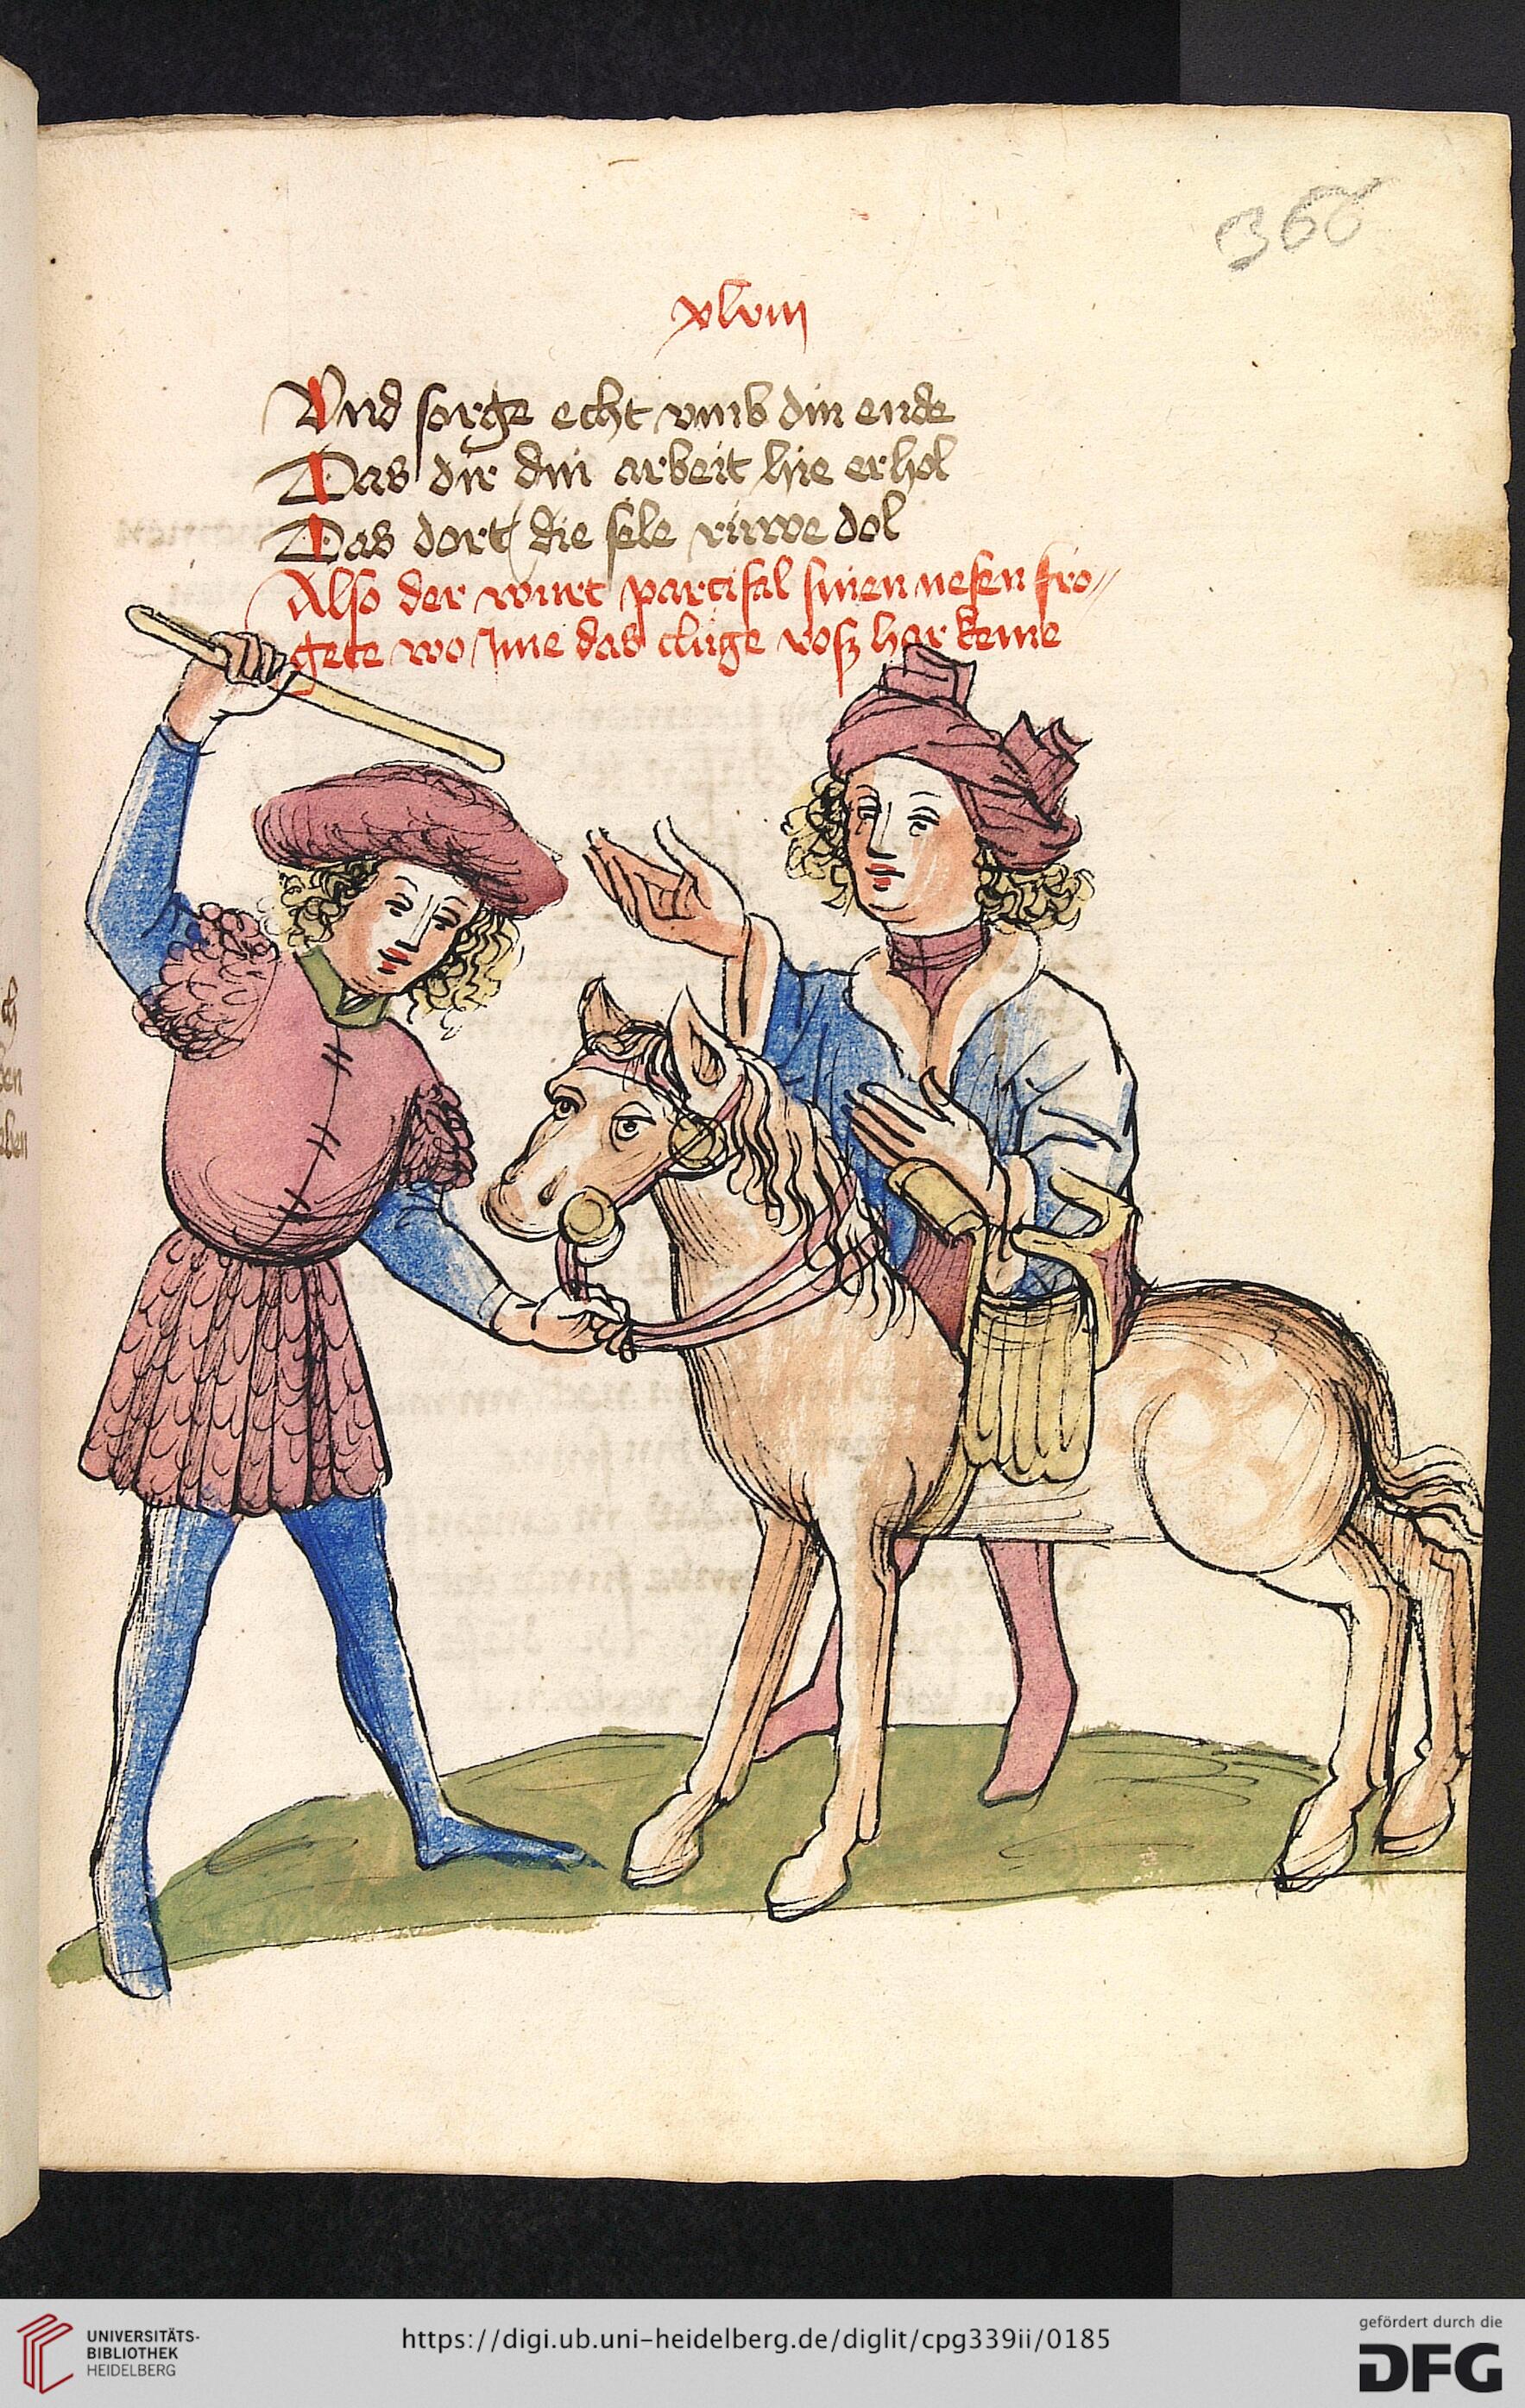 366
xlviii
Vnd sorge echt vmb din ende
Das dir din arbeit hie erhol
Das dort die sele ruwe dol
Also der wurt parcifal sinen nefen fro//
gete wo ime das cluge rosz har keme
UNIVERSITÄTS-
BIBLIOTHEK
HEIDELBERG
https://digi.ub.uni-heidelberg.de/diglit/cpg339ii/0185
gefördert durch die
DFG